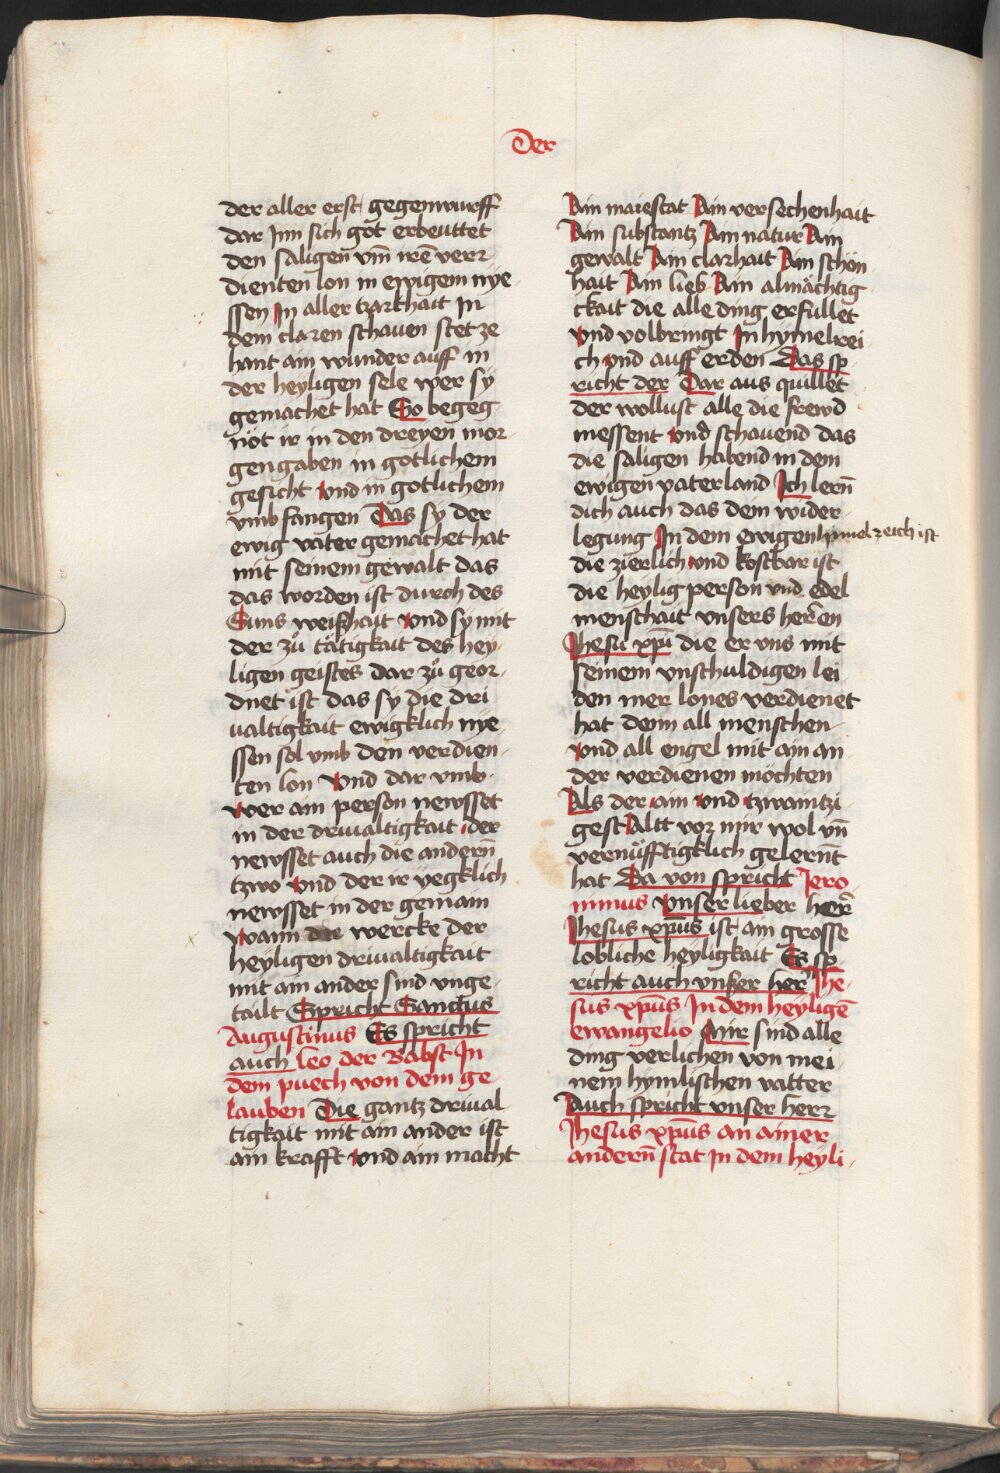 Der
der aller erst gegenwurff
dar Jnn sich got erbeuttet
den saligen vm̄ irē verr
dienten lon in ewigem nye
ssen Jn aller zarthait Jn
dem claren schauen stet ze
hant ain wunder auff in
der heyligen sele wer sy
gemachet hat So begeg
nöt ir in den dreyen mor
gengaben in gotlichem
gesicht vnd in gotlichem
vmbfangen Das sy der
ewig vater gemachet hat
mit seinem gewalt das
das worden ist durch des
Suns weißhait vnd sy mit
der zů tätigkait des hey
ligen geistes dar zů geor
dnet ist das sy die dri
ualtigkait ewigklich nye
ssen sol vmb den verdien
ten lon vnd dar vmb
wer ain person newsset
in der driualtigkait der
newsset auch die andern̄
tzwo vnd der ir yegklich
newsset in der gemain
wann die wercke der
heyligen driualtigkait
mit ain ander sind vnge
tailt Spricht Sanctus
Augustinus Es spricht
auch Leo der Babst Jn
dem puech von dem ge
lauben Die gantz driual
tigkait mit ain ander ist
ain krafft vnd ain macht
Ain maiestat Ain versechenhait
Ain substantz Ain natur Ain
gewalt Ain clarhait Ain schön
hait Ain lieb Ain almächtig
ckait die alle ding erfullet
vnd volbringt Jn hymelrei
ch vnd auff erden Das sp
richt der Dar aus quillet
der wollust alle die frewd
messent vnd schauend das
die saligen habend in dem
ewigen vaterland Jch lern̄
dich auch das dem wider
legung Jn dem ewigen himelreich ist
die zierlich vnd kostbar ist
die heylig person vnd edel
menschait vnsers herren
Jhesu xp̄i die er vns mit
seinem vnschuldigen lei
den mer lones verdienet
hat denn all menschen
vnd all engel mit ain an
der verdienen möchten
Als der ain vnd tzwaintzi
gest Altt vor mir wol vn̄
vernüfftigklich gelernt
hat Da von spricht Jero
nimus Vnser lieber her̄
Jhesus xp̄us ist ain grosse
lobliche heyligkait Es sp
richt auch vnser her̄ Jhe
sus xp̄us Jn dem heyligē
ewangelio Mir sind alle
ding verlichen von mei
nem hymlischen vatter
Auch spricht vnser herr
Jhesus xp̄us an ainer
andern̄ stat Jn dem heyli